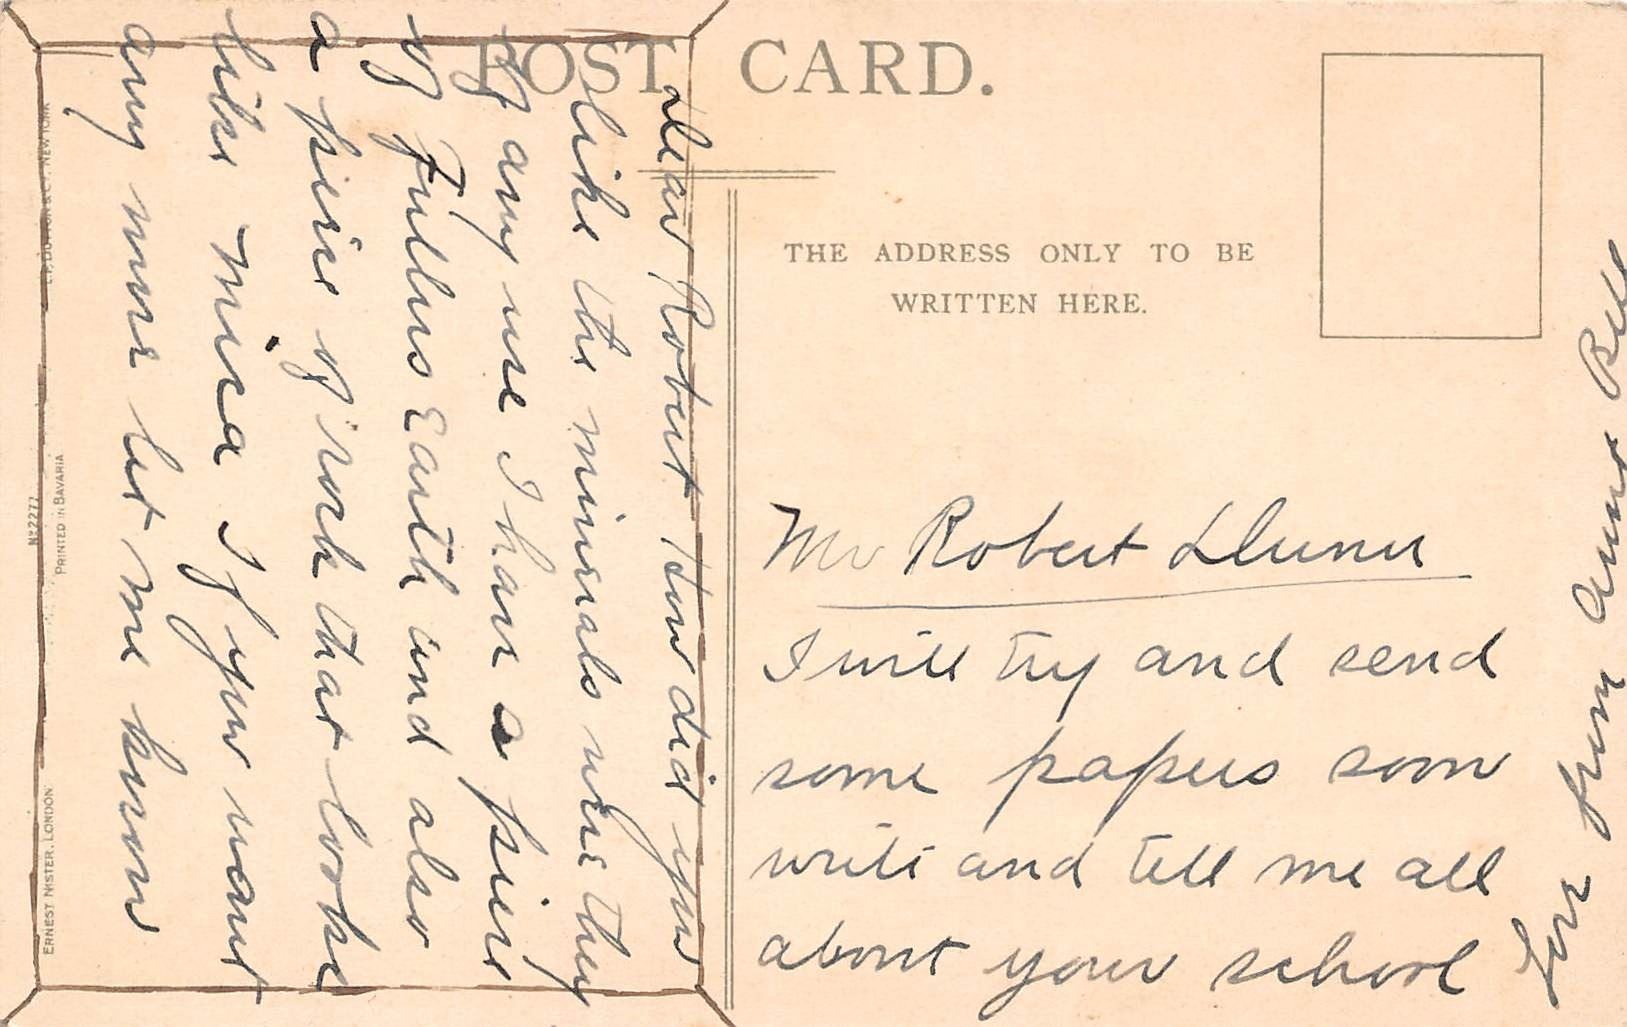 POST CARD.
THE ADDRESS ONLY TO BE
WRITTEN HERE.
Dear Robert How did you
like the minerals were they
of any use I have a piece
of Fullers Earth and also
a piece of rock that looks
like mica If you want
any more let me know
Mr Robert Dunn
I will try and send
some papers soon
write and tell me all
about your school
Love from Aunt Bell
E.P. DUTTON & CO. NEW YORK
No 2277
PRINTED IN BAVARIA
ERNEST NISTER, LONDON